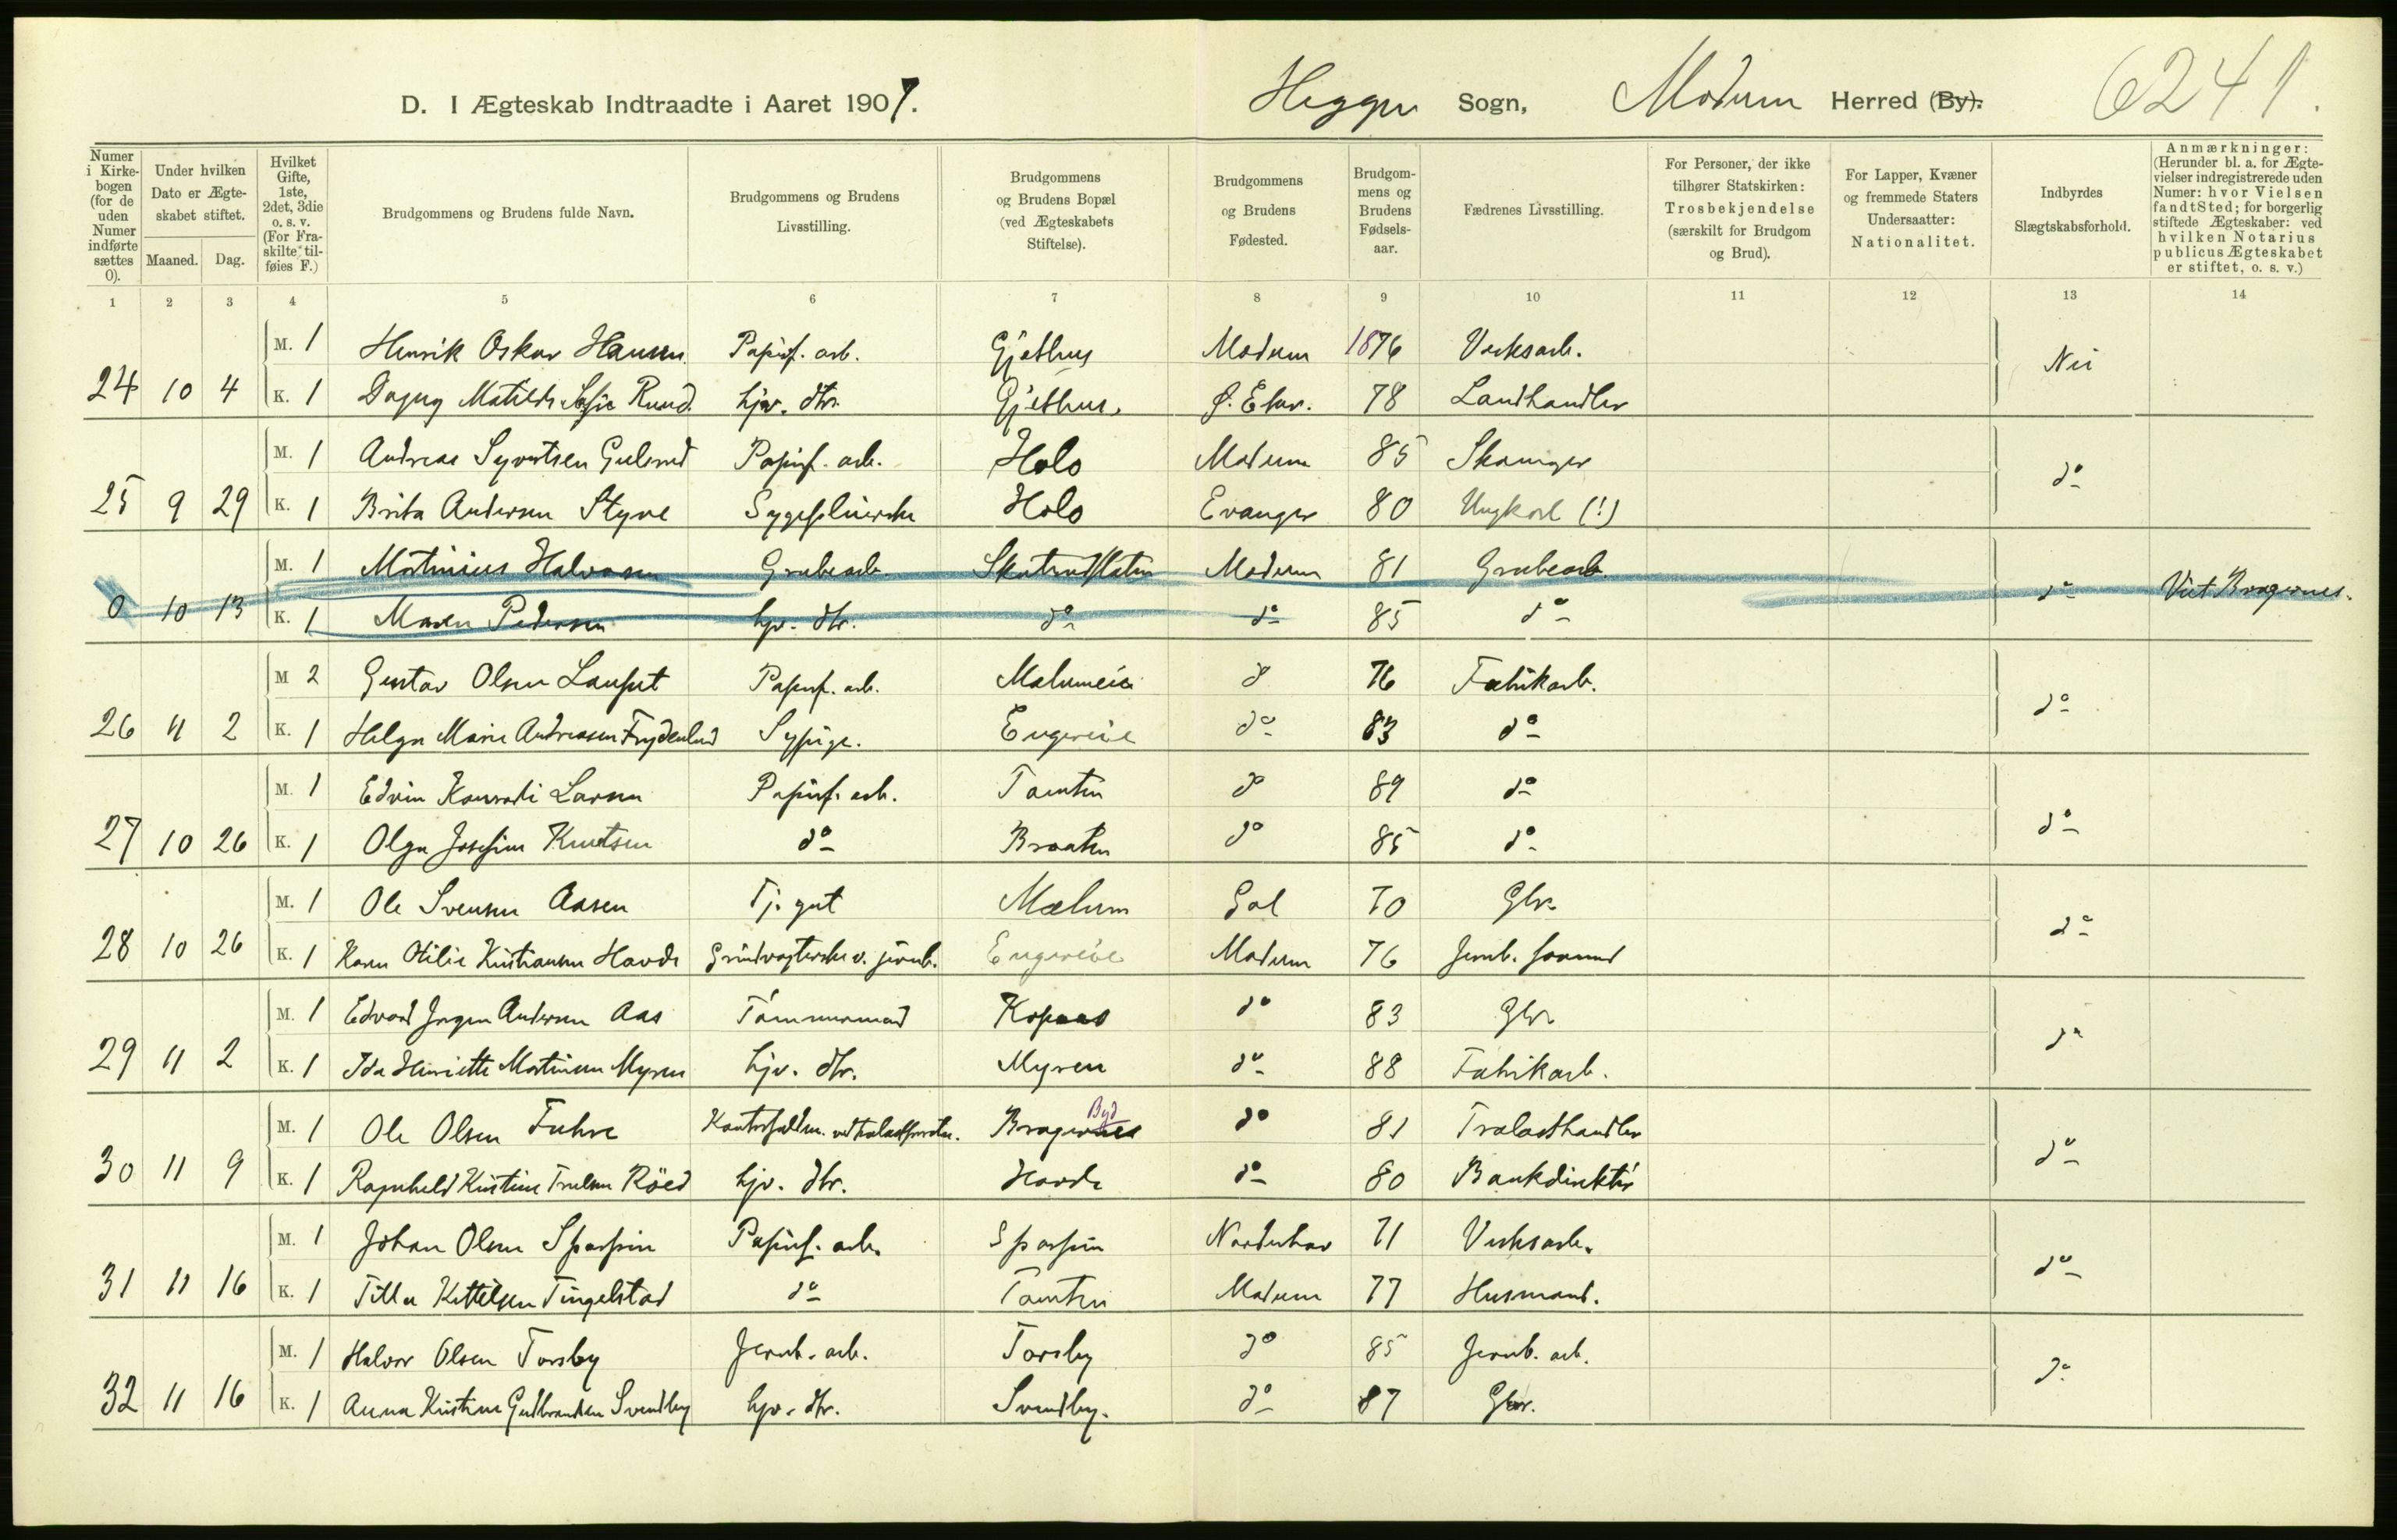 D. I Ægteskab Indtraadte i Aaret 1907. Heggen Sogn, Modum Herred (By). 6241.
Numer i Kirkebogen (for de uden Numer indførte sættes 0).
Under hvilken Dato er Ægteskabet stiftet.
Maaned. Dag.
Hvilket Gifte, 1ste, 2det, 3die o. s. v. (For Fraskilte tilføies F.)
Brudgommens og Brudens fulde Navn.
Brudgommens og Brudens Livsstilling.
Brudgommens og Brudens Bopæl (ved Ægteskabets Stiftelse).
Brudgommens og Brudens Fødested.
Brudgommens og Brudens Fødselsaar.
Fædrenes Livsstilling.
For Personer, der ikke tilhører Statskirken: Trosbekjendelse (særskilt for Brudgom og Brud).
For Lapper, Kvæner og fremmede Staters Undersaatter: Nationalitet.
Indbyrdes Slægtskabsforhold.
Anmærkninger: (Herunder bl. a. for Ægtevielser indregistrerede uden Numer: hvor Vielsen fandt Sted; for borgerlig stiftede Ægteskaber: ved hvilken Notarius publicus Ægteskabet er stiftet, o. s. v.)
1 2 3 4 5 6 7 8 9 10 11 12 13 14
M. 1 Henrik Oskar Hansen Papirf. arb. Gjethus Modum 1876 Verksarb. Nei
24 10 4 K. 1 Dagny Matilde Sofie Ruud hjv. dtr. Gjethus. Ø. Eker. 78 Landhandler
M. 1 Andreas Syvertsen Gulsrud Papirf. arb. Holo Modum 85 do
25 9 29 K. 1 Brita Andersen Styve Sygepleierske Holo Evanger 80 Ungkarl (!)
M. 1 Martinius Halvorsen Grubearb. Modum 81 Grubearb. do Viet Bragernes.
0 10 13 K. 1 Maren Pedersen hjv. dtr. do do 85 do
M 2 Gustav Olsen Papirf. arb. do 76 Fabrikarb. do
26 11 2 K. 1 Helga Marie Andreasen Frydenlund Sypige. Engereie do 83 do
M. 1 Edvin Konradi Larsen Papirf. arb. Tomten do 89 do do
27 10 26 K. 1 Olga Josefine Knutsen do Braaten do 85 do
M. 1 Ole Svensen Aasen Tj. gut Mælum Gol 70 Gbr. do
28 10 26 K. 1 Karen Otilie Kristiansen Hovde Grindvogterske v. jernb. Engereie Modum 76 Jernb. formand
M. 1 Edvard Jørgen Andersen Aas Tømmermand Kopaas do 83 Gbr. do
29 11 2 K. 1 Ida Henriette Martinsen Myren hjv. dtr. Myren do 88 Fabrikarb.
M. 1 Ole Olsen Fuhre Bragernes Byd do 81 Trælasthandler do
30 11 9 K. 1 Ragnhild Kristine Trulsen Röed hjv. dtr. Hovde do 80 Bankdirektør
M. 1 Johan Olsen Papirf. arb. Norderhov 71 Verksarb. do
31 11 16 K. 1 Tilla Kittilsen Tingelstad do Tomten Modum 77 Husmand.
M. 1 Halvor Olsen Torsby Jernb. arb. Torsby do 85 Jernb. arb. do
32 11 16 K. 1 Anna Kristine Gudbrandsen Svendby hjv. dtr. Svendby. do 87 Gbr.